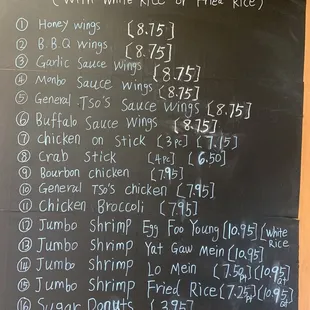 (with white Rice or Fried Rice)
① Honey wings [8.75]
② B.B.Q wings [8.75]
③ Garlic Sauce wings [8.75]
④ Mambo Sauce wings [8.75]
⑤ General .Tso's Sauce wings [8.75]
⑥ Buffalo Sauce wings [8.75]
⑦ chicken on Stick [3pc] [7.15]
⑧ Crab Stick [4pc] [6.50]
⑨ Bourbon chicken [7.95]
⑩ General Tso's chicken [7.95]
⑪ Chicken Broccoli [7.95]
⑫ Jumbo Shrimp Egg Foo Young [10.95] [white Rice
⑬ Jumbo Shrimp Yat Gaw Mein [10.95]
⑭ Jumbo Shrimp Lo Mein [7.50pt] [10.95qt]
⑮ Jumbo Shrimp Fried Rice [7.25pt] [10.95qt]
⑯ Sugar Donuts [3.95]